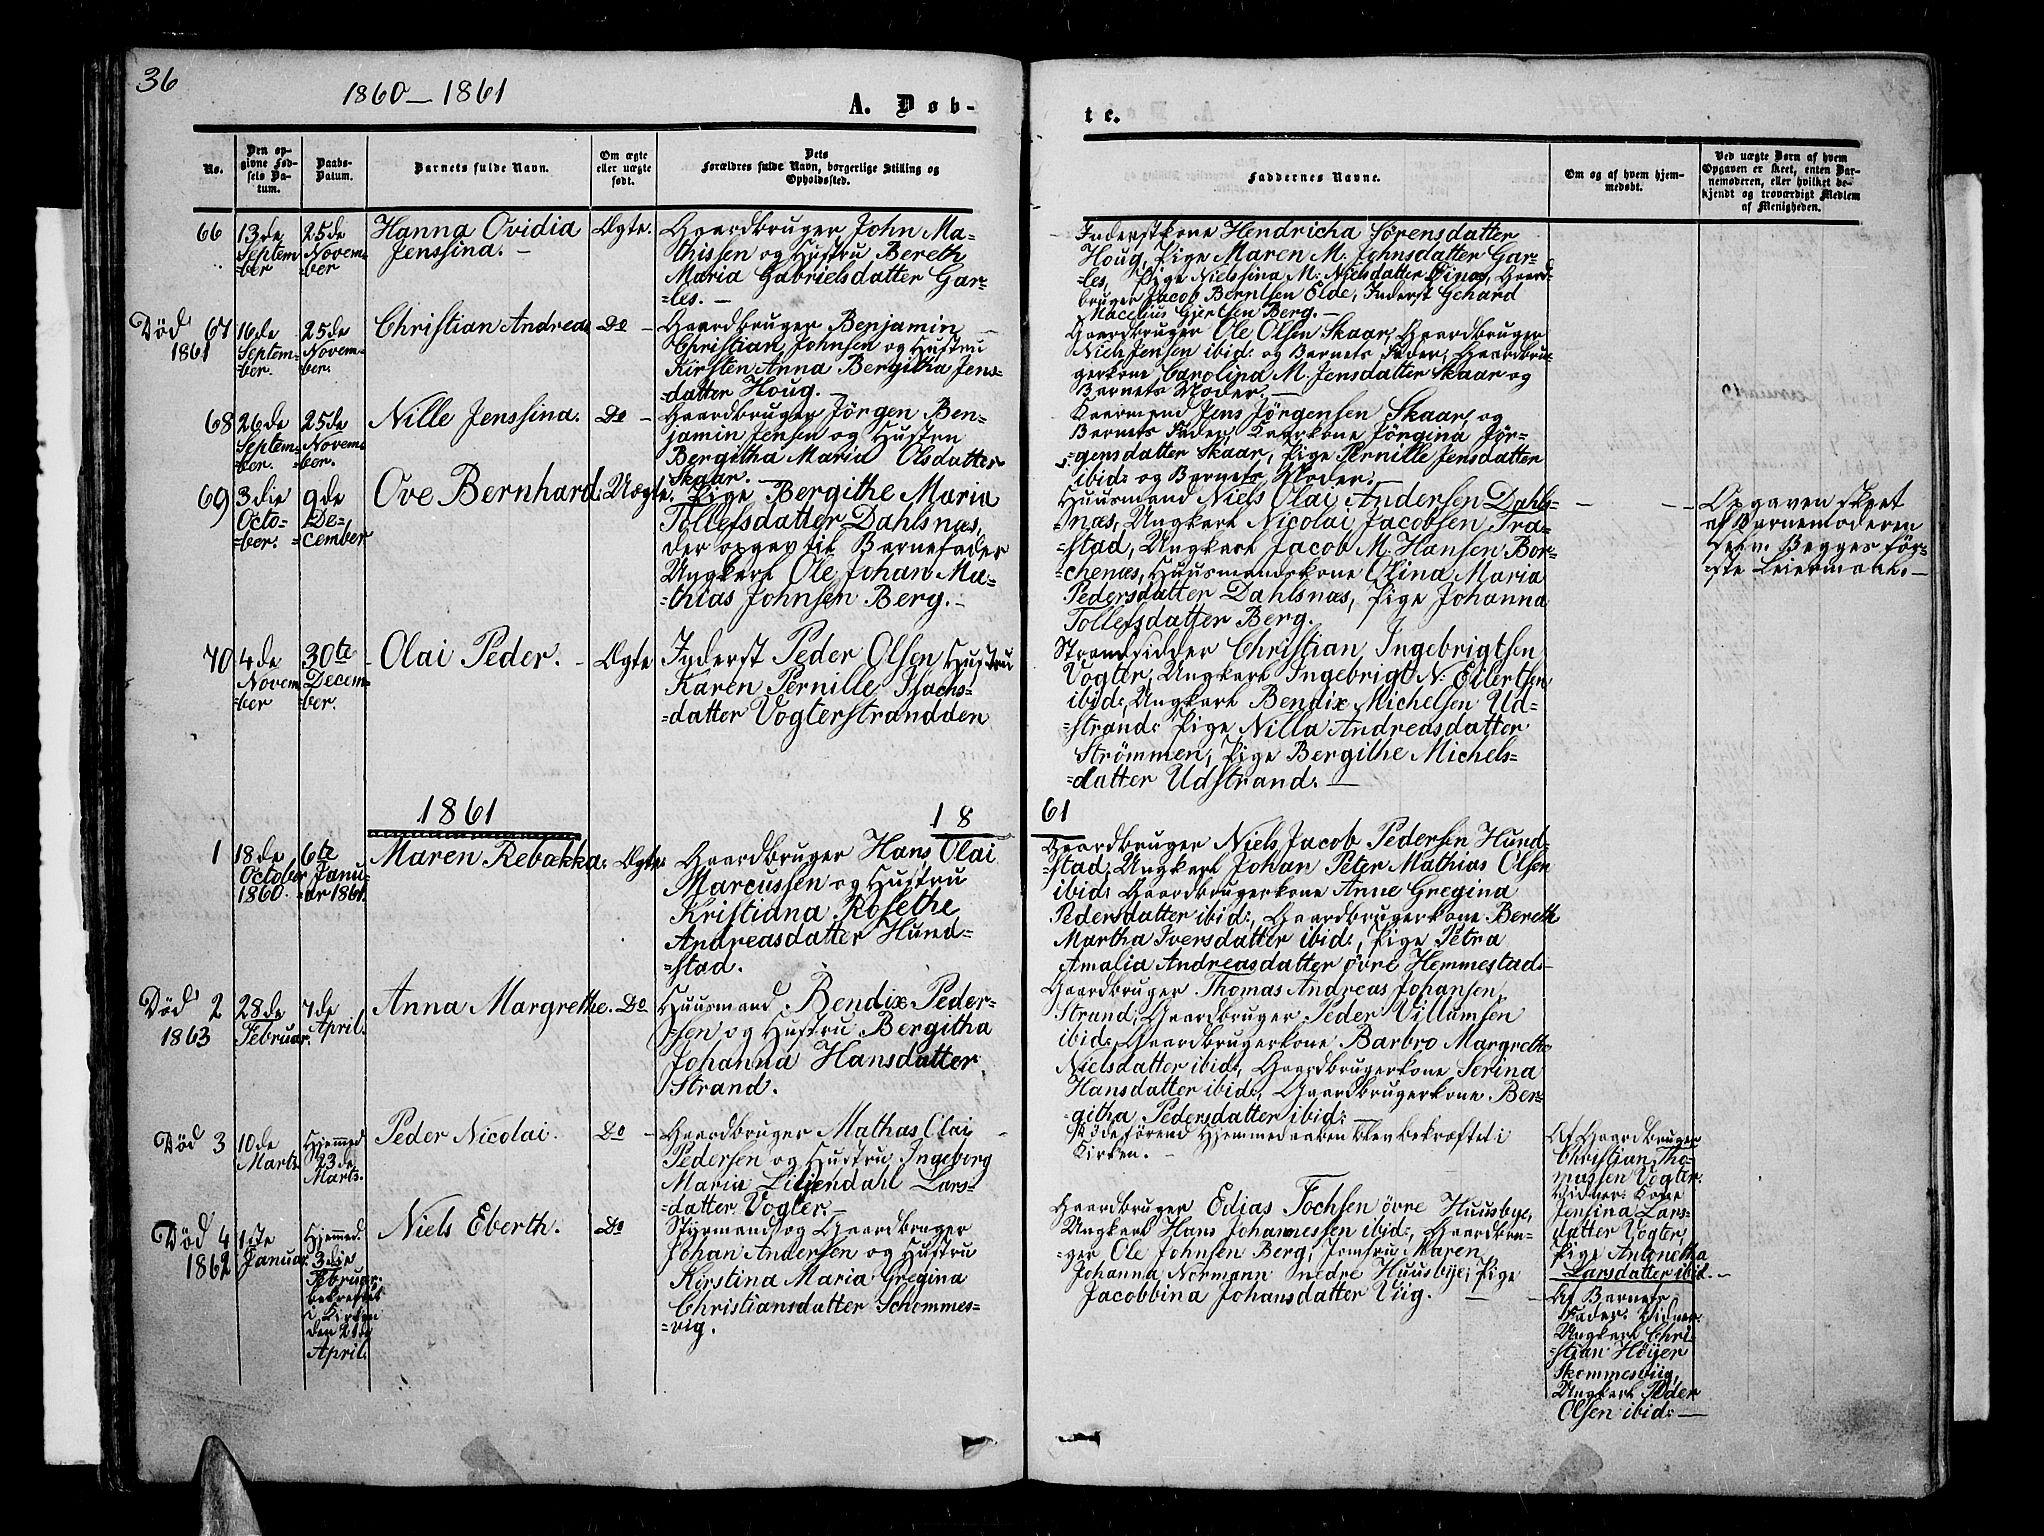 36
1860 — 1861
A. Døb-
te.
No.
Den op-
givne Fød-
sels Da-
tum.
Daabs-
Datum.
Barnets fulde Navn.
Om ægte
eller uægte
født.
Dets
Forældres fulde Navn, borgerlige Stilling og
Opholdssted.
Faddernes Navne.
Om og af hvem hjem-
medøbt.
Ved uægte Børn af hvem
Opgaven er skeet, enten Bar-
nemoderen, eller hvilket be-
kjendt og troværdigt Medlem
af Menigheden.
66
13de
Septem
-ber
25de
Novem-
-ber
Hanna Ovidia
Jenssina. —
Ægte.
Gaardbruger John Ma-
thissen og Hustru Bereth
Maria Gabrielsdatter Gar-
-les. —
Inderstkone Hendricha Sørensdatter
Houg, Pige Maren M. Johnsdatter Gar-
les, Pige Nielssina M. Nielsdatter Finas, Gaard-
bruger Jacob Berntsen Elde, Inderst Gehard
Macelius Gjertsen Berg. —
Død 67
1861
16de
Septem-
ber.
25de
Novem-
ber.
Christian Andreas
Do —
Gaardbruger Benjamin —
Christian Johnsen og Hustru
Kirsten Anna Bergitha Jens-
datter Houg. —
Gaardbruger Ole Olsen Skaar, Gaardbruger
Niels Jensen ibid: og Barnets Fader, Gaardbru-
gerkone Carolina M. Jensdatter Skaar og
Barnets Moder. —
68
26de
Septem-
ber.
25de
Novem-
ber.
Nille Jenssina.
Do —
Gaardbruger Jørgen Ben-
jamin Jensen og Hustru
Bergitha Maria Olsdatter
Skaar. —
Kaarmand Jens Jørgensen Skaar, og
Barnets Fader, Kaarkone Jørgina Jør-
gensdatter Skaar, Pige Pernille Jensdatter
ibid: og Barnets Moder. —
69
3die
Octo-
-ber.
9de
De-
-cember
Ove Bernhard.
Uægte.
Pige Bergithe Maria
Tollefsdatter Dahlsnæs,
der opgav til Barnefader
Ungkarl Ole Johan Ma-
-thias Johnsen Berg. —
Huusmand Niels Olai Andersen Dahls-
næs, Ungkarl Nicolai Jacobsen Tra-
-stad, Ungkarl Jacob M. Hansen Bor-
chenæs, Huusmandskone Olina Maria
Pedersdatter Dahlsnæs, Pige Johanna
Tollefsdatter Berg.
Opgaven skeet
af Barnemoderen
som Begges før-
ste Leiermaal. —
70
4de
Novem
-ber
30te
Decem-
-ber.
Olai Peder. —
Ægte
Inderst Peder Olsen Hustru
Karen Pernille Isachs-
=datter Vogterstrandden
Strandsidder Christian Ingebrigtsen
Vogter, Ungkarl Ingebrigt N. Eilertsen
ibid:, Ungkarl Bendix Michelsen Ud-
=strand: Pige Nilla Andreasdatter
Strömmen, Pige Bergithe Michels-
=datter Udstrand. —
1861
18
61
1
18de
October
1860.
6te
Janu-
-ar 1861.
Maren Rebækka.
Ægte
Gaardbruger Hans Olai
Marcussen og Hustru
Kristiana Rosethe
Andreasdatter Hund-
=stad.
Gaardbruger Niels Jacob Pedersen Hund-
=stad, Ungkarl Johan Peter Mathias Olsen
ibid: Gaardbrugerkone Anne Gregina
Pedersdatter ibid:, Gaardbrugerkone Bereth
Martha Iversdatter ibid:, Pige Petra
Amalia Andreasdatter øvre Hemmestad. —
Død 2
1863
28de
Februar.
7de
April.
Anna Margrethe.
Do
Huusmand Bendix Peder-
sen og Hustru Bergitha
Johanna Hansdatter
Strand.
Gaardbruger Thomas Andreas Johansen,
Strand, Gaardbruger Peder Villumsen
ibid:, Gaardbrugerkone Barbro Margrethe
Nielsdatter ibid:, Gaardbrugerkone Serina
Hansdatter ibid:, Gaardbrugerkone Ber-
githa Pedersdatter ibid: —
Død 3
10de
Marts.
Hjemmed
23de
Marts.
Peder Nicolai.
Do —
Gaardbruger Mathas Olai —
Pedersen og Hustru Ingeborg
Maria Liliendahl Lars-
datter Vogter. —
Hjemmedaaben blev bekræftet i
Kirken. —
Af Gaardbruger
Christian Tho-
massen Vogter.
Vidner: Kone
Jensina Lars-
datter Vogter,
Pige Antonetha
Larsdatter ibid. —
Død 4
1862
1ste
Januar.
Hjemmed.
3die
Februar.
bekræftet
i Kirken
den 21de
April.
Niels Eberth.
Do
Styrmand og Gaardbruger
Johan Andersen og Hustru
Kirstina Maria Gregina
Christiansdatter Schommes-
=vig.
Gaardbruger Edias Tochsen øvre Huusbye,
Ungkarl Hans Johannessen ibid:, Gaardbru-
-ger Ole Johnsen Berg, Jomfru Maren
Johanna Normann nedre Huusbye, Pige
Jacobbina Johansdatter Viig. — —
Af Barnets
Fader. Vidner:
Ungkarl Chri-
=stian Höijer
Skommesviig,
Ungkarl Peder
Olsen ibid: —